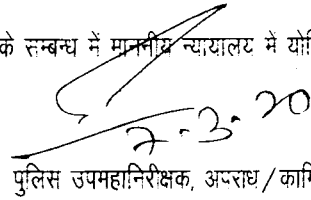 के सम्बन्ध में माननीय न्यायालय में
7-3-20
पुलिस उपमहानिरीक्षक, अपराध/कार्मि